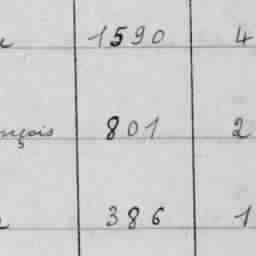 1590 4
nçois 801 2
386 1